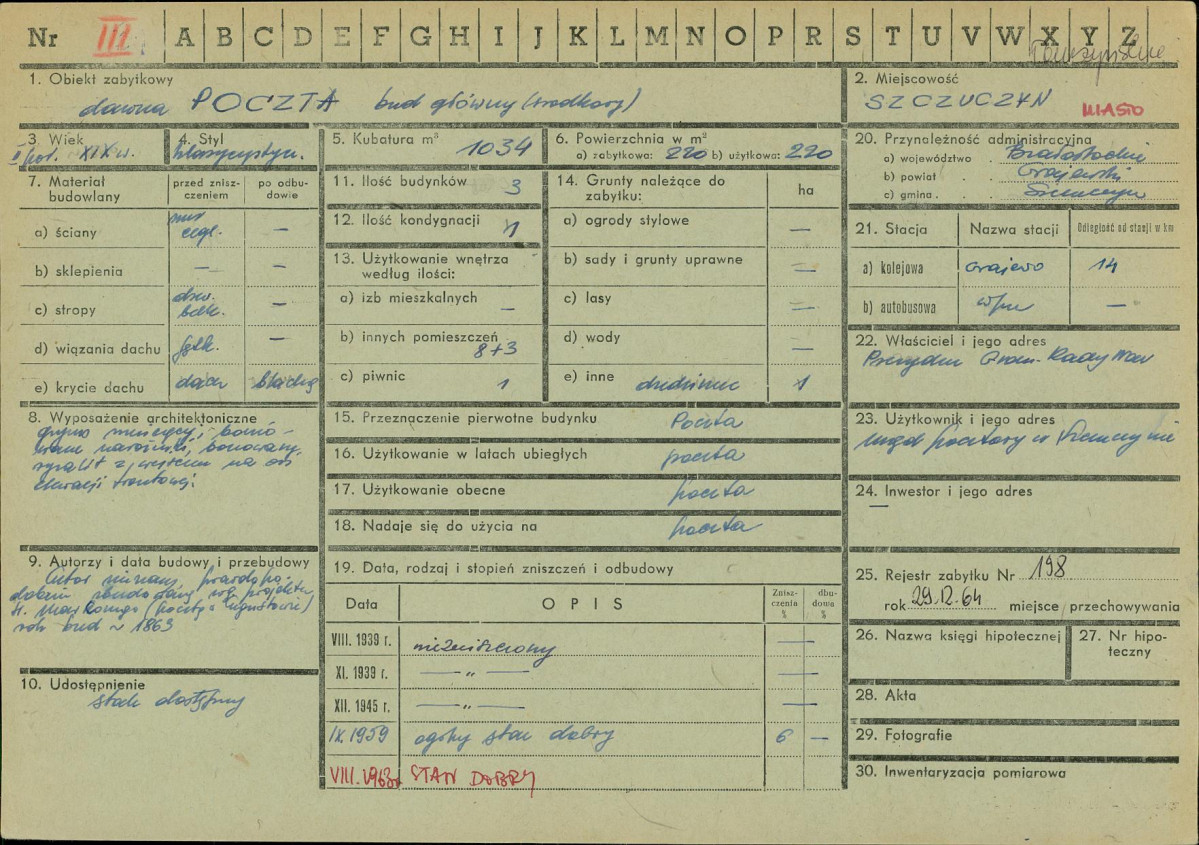 Nr III A B C D E F G H I J K L M N O P R S T U V W X Y Z
1. Obiekt zabytkowy
dawna POCZTA bud główny (środkowy)
2. Miejscowość
SZCZUCZYN MIASTO
3. Wiek
II poł. XIX w.
4. Styl
klasycystycz.
5. Kubatura m³ 1034
6. Powierzchnia w m²
a) zabytkowa: 220 b) użytkowa: 220
7. Materiał budowlany
przed zniszczeniem
po odbudowie
a) ściany mur cegl. —
b) sklepienia — —
c) stropy drew. belk. —
d) wiązania dachu —
e) krycie dachu dachówk blachą
8. Wyposażenie architektoniczne
gzyms
narożniki, boniowany
ryzalit z wejściem na osi
elewacji frontowej
9. Autorzy i data budowy i przebudowy
Autor nieznany, prawdopo-
dobnie zbudowany wg projektu
H. Marconiego (poczty w Augustowie)
rok bud ~ 1863
10. Udostępnienie
stale dostępny
11. Ilość budynków 3
12. Ilość kondygnacji 1
13. Użytkowanie wnętrza
według ilości:
a) izb mieszkalnych —
b) innych pomieszczeń 8+3
c) piwnic 1
14. Grunty należące do
zabytku:
ha
a) ogrody stylowe —
b) sady i grunty uprawne —
c) lasy —
d) wody —
e) inne dziedziniec 1
15. Przeznaczenie pierwotne budynku Poczta
16. Użytkowanie w latach ubiegłych poczta
17. Użytkowanie obecne poczta
18. Nadaje się do użycia na poczta
19. Data, rodzaj i stopień zniszczeń i odbudowy
Data OPIS Zniszczenia % dbudowa %
VIII. 1939 r. niezniszczony —
XI. 1939 r. — „ — —
XII. 1945 r. — „ — —
IX. 1959 ogólny stan dobry 6 —
VIII. 1963r STAN DOBRY
20. Przynależność administracyjna
a) województwo Białostockie
b) powiat Grajewski
c) gmina Szczuczyn
21. Stacja Nazwa stacji Odległość od stacji w km
a) kolejowa Grajewo 14
b) autobusowa —
22. Właściciel i jego adres
Prezydium Grom. Rady Nar
23. Użytkownik i jego adres
Urząd pocztowy w Szczuczynie
24. Inwestor i jego adres
—
25. Rejestr zabytku Nr 198
rok 29.12.64 miejsce przechowywania
26. Nazwa księgi hipotecznej
27. Nr hipoteczny
28. Akta
29. Fotografie
30. Inwentaryzacja pomiarowa